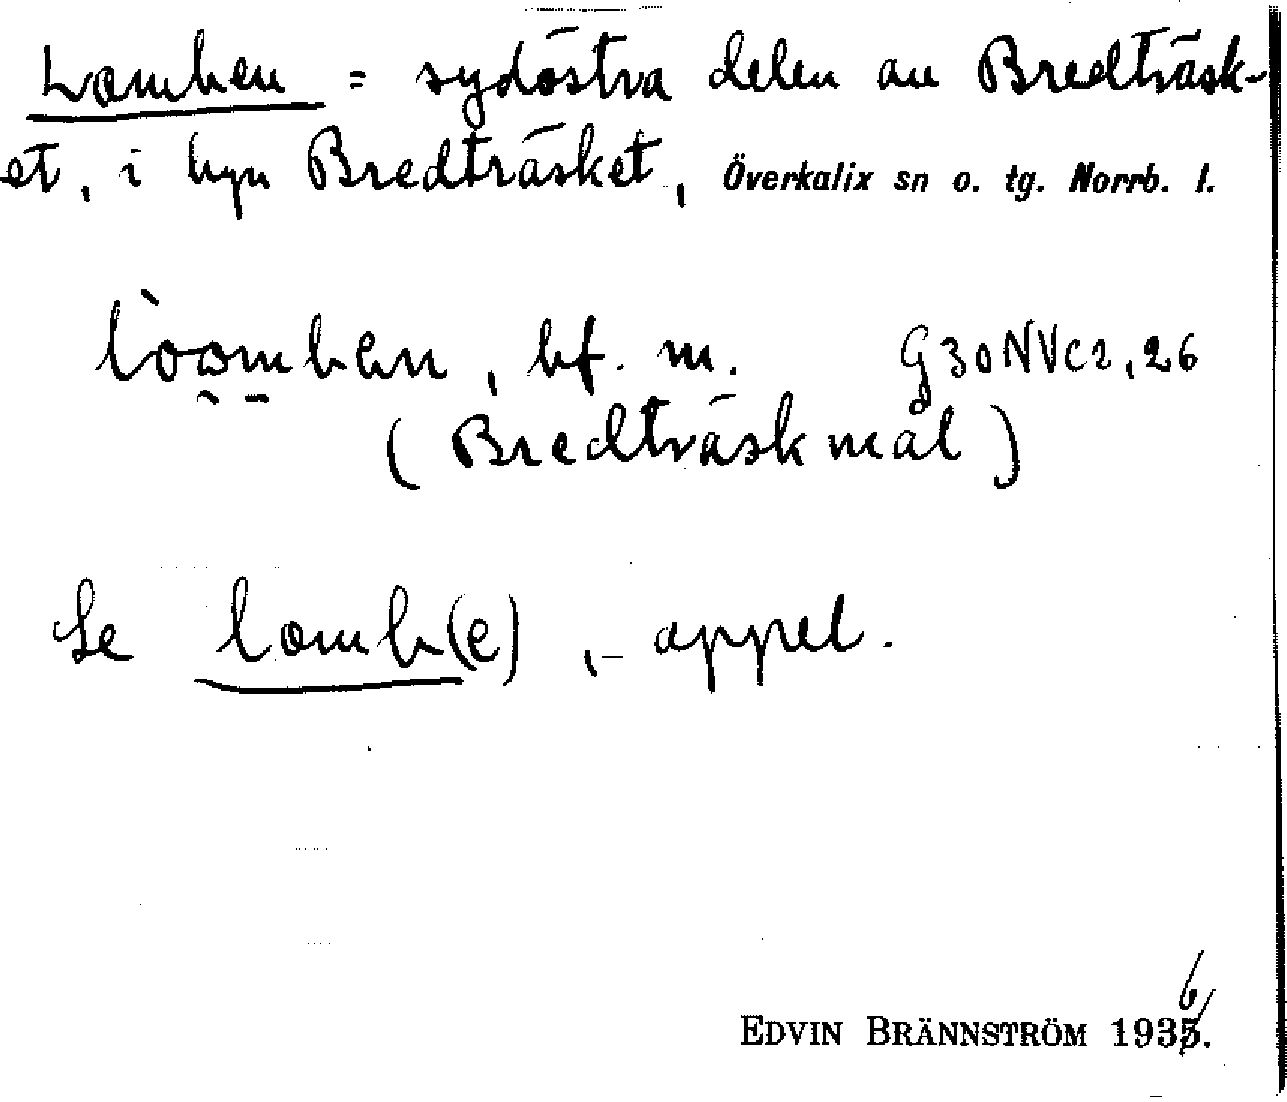 Lomben = sydöstra delen av Bredträsk-
et, i byn Bredträsket, Överkalix sn o. tg. Norrb. l.
lòomben, bf. m. G30NVc2,26
(Bredträskmål)
Se lomb(e), appel.
EDVIN BRÄNNSTRÖM 1936.